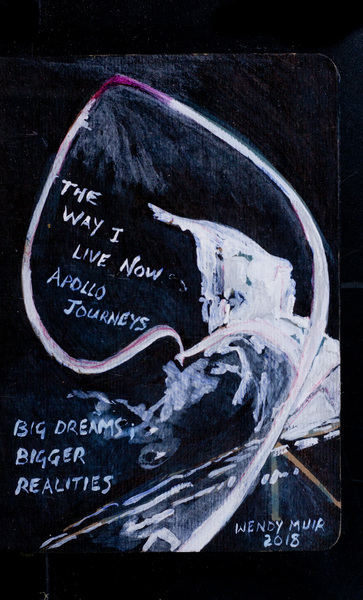 THE
WAY I
LIVE NOW
APOLLO
JOURNEYS
BIG DREAMS;
BIGGER
REALITIES
WENDY MUIR
2018